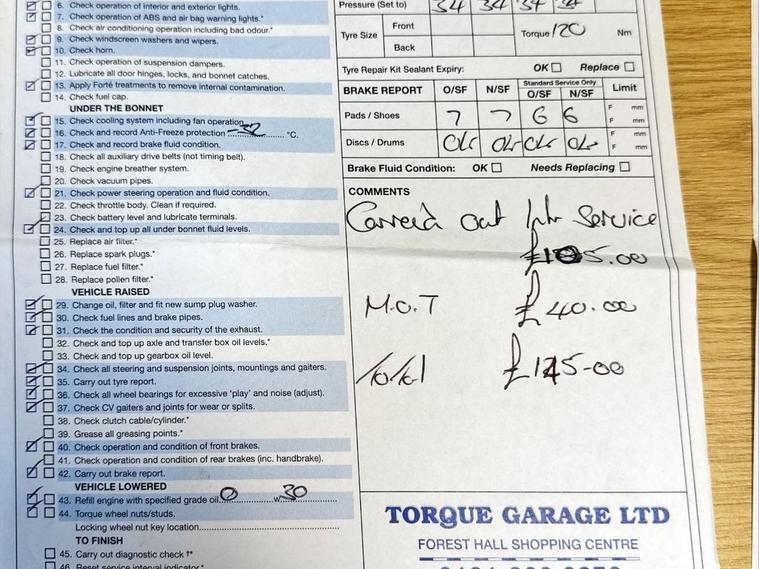 6. Check operation of interior and exterior lights.
7. Check operation of ABS and air bag warning lights.*
8. Check air conditioning operation including bad odour.*
9. Check windscreen washers and wipers.
10. Check horn.
11. Check operation of suspension dampers.
12. Lubricate all door hinges, locks, and bonnet catches.
13. Apply Forté treatments to remove internal contamination.
14. Check fuel cap.
UNDER THE BONNET
15. Check cooling system including fan operation.
16. Check and record Anti-Freeze protection -32 °C.
17. Check and record brake fluid condition.
18. Check all auxiliary drive belts (not timing belt).
19. Check engine breather system.
20. Check vacuum pipes.
21. Check power steering operation and fluid condition.
22. Check throttle body. Clean if required.
23. Check battery level and lubricate terminals.
24. Check and top up all under bonnet fluid levels.
25. Replace air filter.*
26. Replace spark plugs.*
27. Replace fuel filter.*
28. Replace pollen filter.*
VEHICLE RAISED
29. Change oil, filter and fit new sump plug washer.
30. Check fuel lines and brake pipes.
31. Check the condition and security of the exhaust.
32. Check and top up axle and transfer box oil levels.*
33. Check and top up gearbox oil level.
34. Check all steering and suspension joints, mountings and gaiters.
35. Carry out tyre report.
36. Check all wheel bearings for excessive 'play' and noise (adjust).
37. Check CV gaiters and joints for wear or splits.
38. Check clutch cable/cylinder.*
39. Grease all greasing points.*
40. Check operation and condition of front brakes.
41. Check operation and condition of rear brakes (inc. handbrake).
42. Carry out brake report.
VEHICLE LOWERED
43. Refill engine with specified grade oil. 0 w 30
44. Torque wheel nuts/studs.
Locking wheel nut key location
TO FINISH
45. Carry out diagnostic check †*
46. Reset service interval indicator.*
Pressure (Set to) 34 34 34 34
Tyre Size Front Torque 120 Nm
Back
Tyre Repair Kit Sealant Expiry: OK Replace
BRAKE REPORT O/SF N/SF Standard Service Only O/SF N/SF Limit
Pads / Shoes 7 7 6 6 F mm
Discs / Drums Ok Ok Ok Ok F mm
Brake Fluid Condition: OK Needs Replacing
COMMENTS
Carreid out Intr Service
£105.00
M.O.T £40.00
Total £145-00
TORQUE GARAGE LTD
FOREST HALL SHOPPING CENTRE